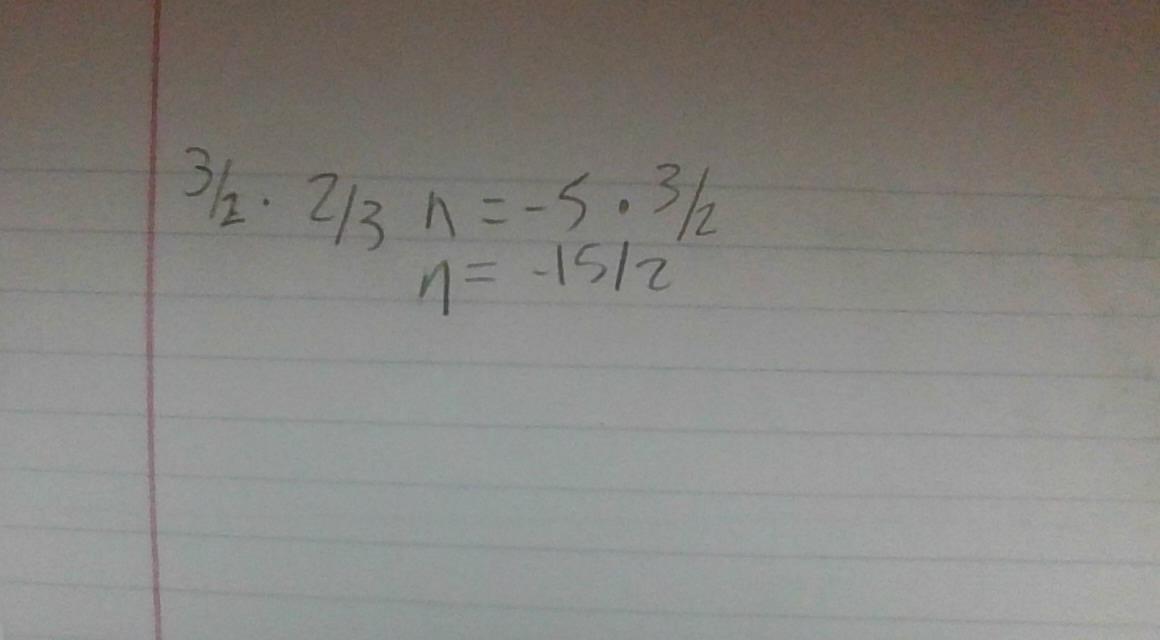 3/2 · 2/3 n = -5 · 3/2
n = -15/2